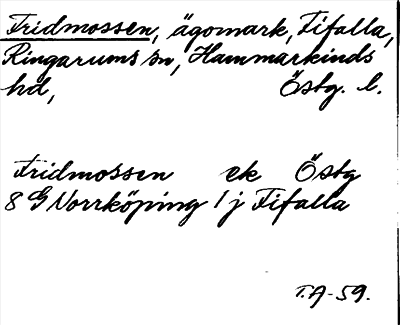 Fridmossen, ägomark, Fifalla,
Ringarums sn, Hammarkinds
hd, Östg. l.
Fridmossen ek Östg
8 G Norrköping 1 j Fifalla
T.A-59.